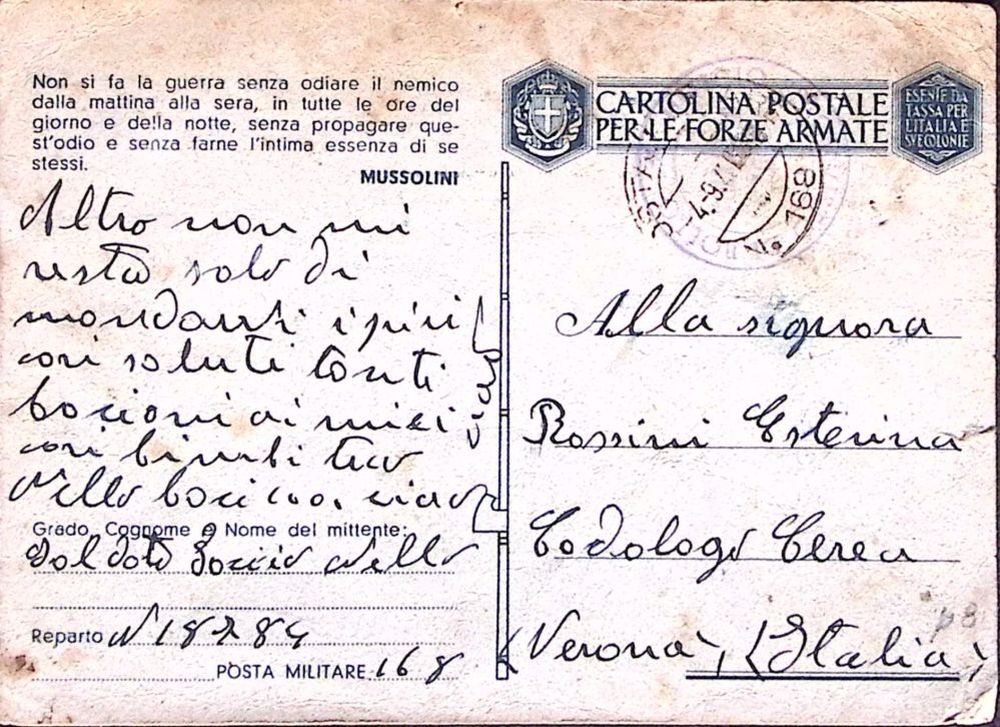 Non si fa la guerra senza odiare il nemico
dalla mattina alla sera, in tutte le ore del
giorno e della notte, senza propagare que-
st'odio e senza farne l'intima essenza di se
stessi.
MUSSOLINI
Altro non mi
resta solo di
mandarti i piu
cari saluti tanti
bacioni ai miei
cari bimbi tuo
Nello ciao
ciao
Grado, Cognome e Nome del mittente:
Soldato Nello
Reparto N 18784
POSTA MILITARE 168
CARTOLINA POSTALE
PER LE FORZE ARMATE
ESENTE DA
TASSA PER
L'ITALIA E
SUE COLONIE
N° 168
4.9.41
Alla signora
Rossini Esterina
Codologo Cerea
(Verona), (Italia)